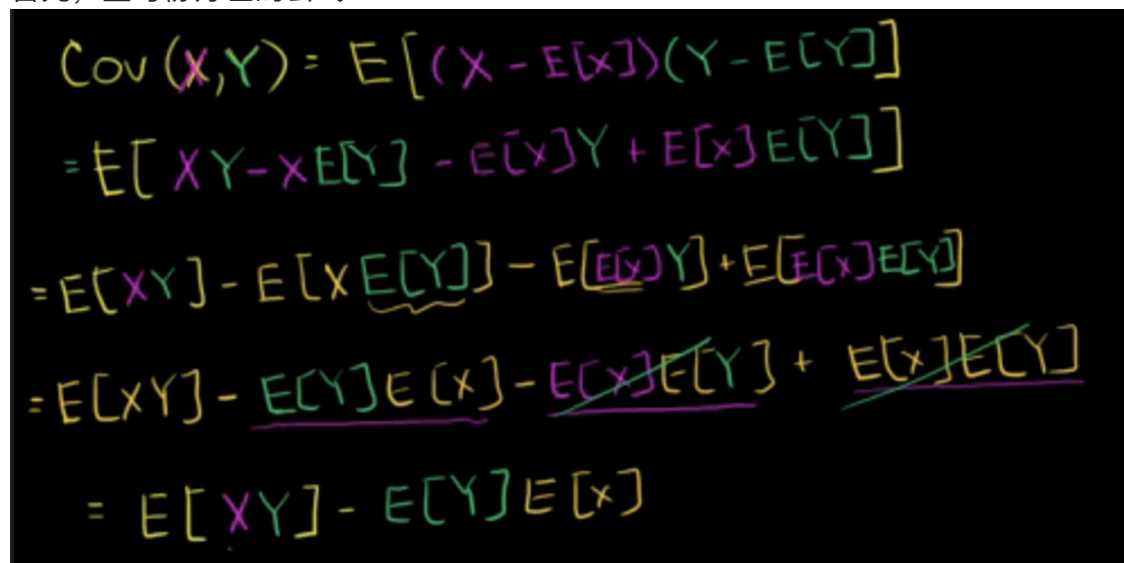 Cov (X,Y) = E[(X - E[X])(Y - E[Y]]
= E[XY - XE[Y] - E[X]Y + E[X]E[Y]]
= E[XY] - E[XE[Y]] - E[E[X]Y] + E[E[X]E[Y]]
= E[XY] - E[Y]E[X] - E[X]E[Y] + E[X]E[Y]
= E[XY] - E[Y]E[X]